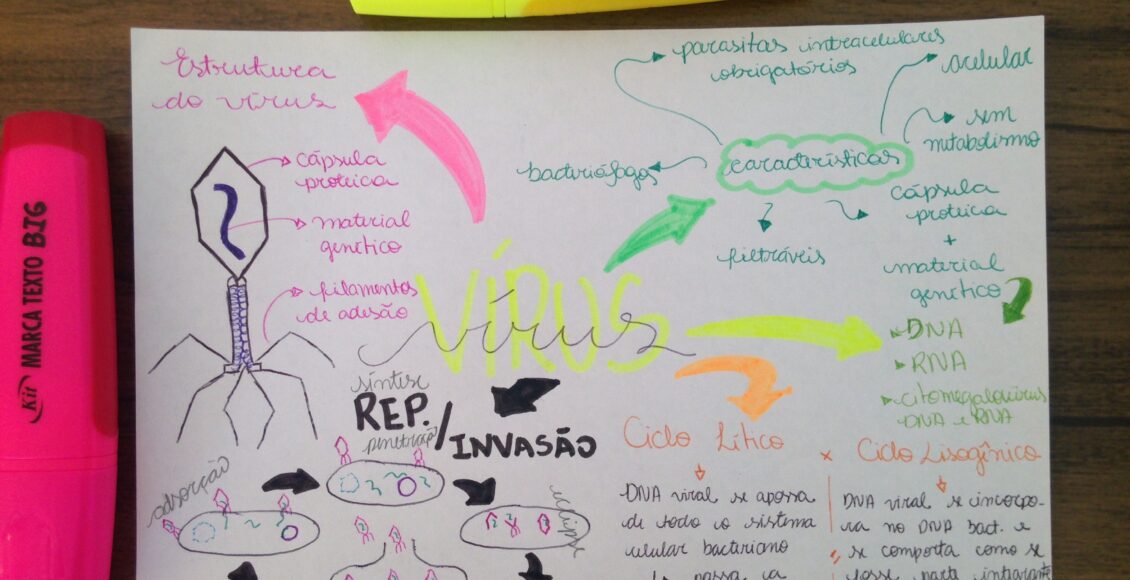 Estrutura
do vírus
cápsula
proteica
material
genético
filamentos
de adesão
VÍRUS
vírus
características
parasitas intracelulares
obrigatórios
acelular
sem
metabolismo
bacteriófagos
filtráveis
cápsula
proteica
+
material
genético
DNA
RNA
citomegalovírus
DNA e RNA
síntese
REP./INVASÃO
penetração
adsorção
eclipse
Ciclo Lítico
x
Ciclo Lisogênico
DNA viral se apossa
de todo o sistema
celular bacteriano
passa a
DNA viral se incorpo-
ra no DNA bact. e
se comporta como se
fosse parte integrante
Kit MARCA TEXTO BIG